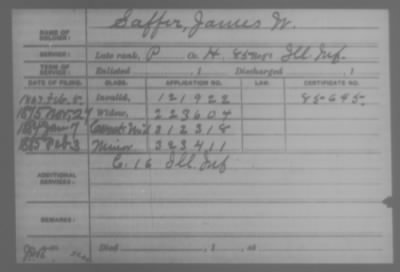 NAME OF SOLDIER: Saffer, James W.
SERVICE: Late rank, P Co. H, 85 Regt Ill. Inf.
TERM OF SERVICE: Enlisted , 1 Discharged , 1
DATE OF FILING. CLASS. APPLICATION NO. LAW. CERTIFICATE NO.
1867 Feb. 5 Invalid, 121922 85645
1875 Nov. 24 Widow, 223604
1884 Jan 7 312318
1885 Feb 3 Minor 323411
ADDITIONAL SERVICES: C. 16 Ill. Inf
REMARKS:
Died , 1 , at